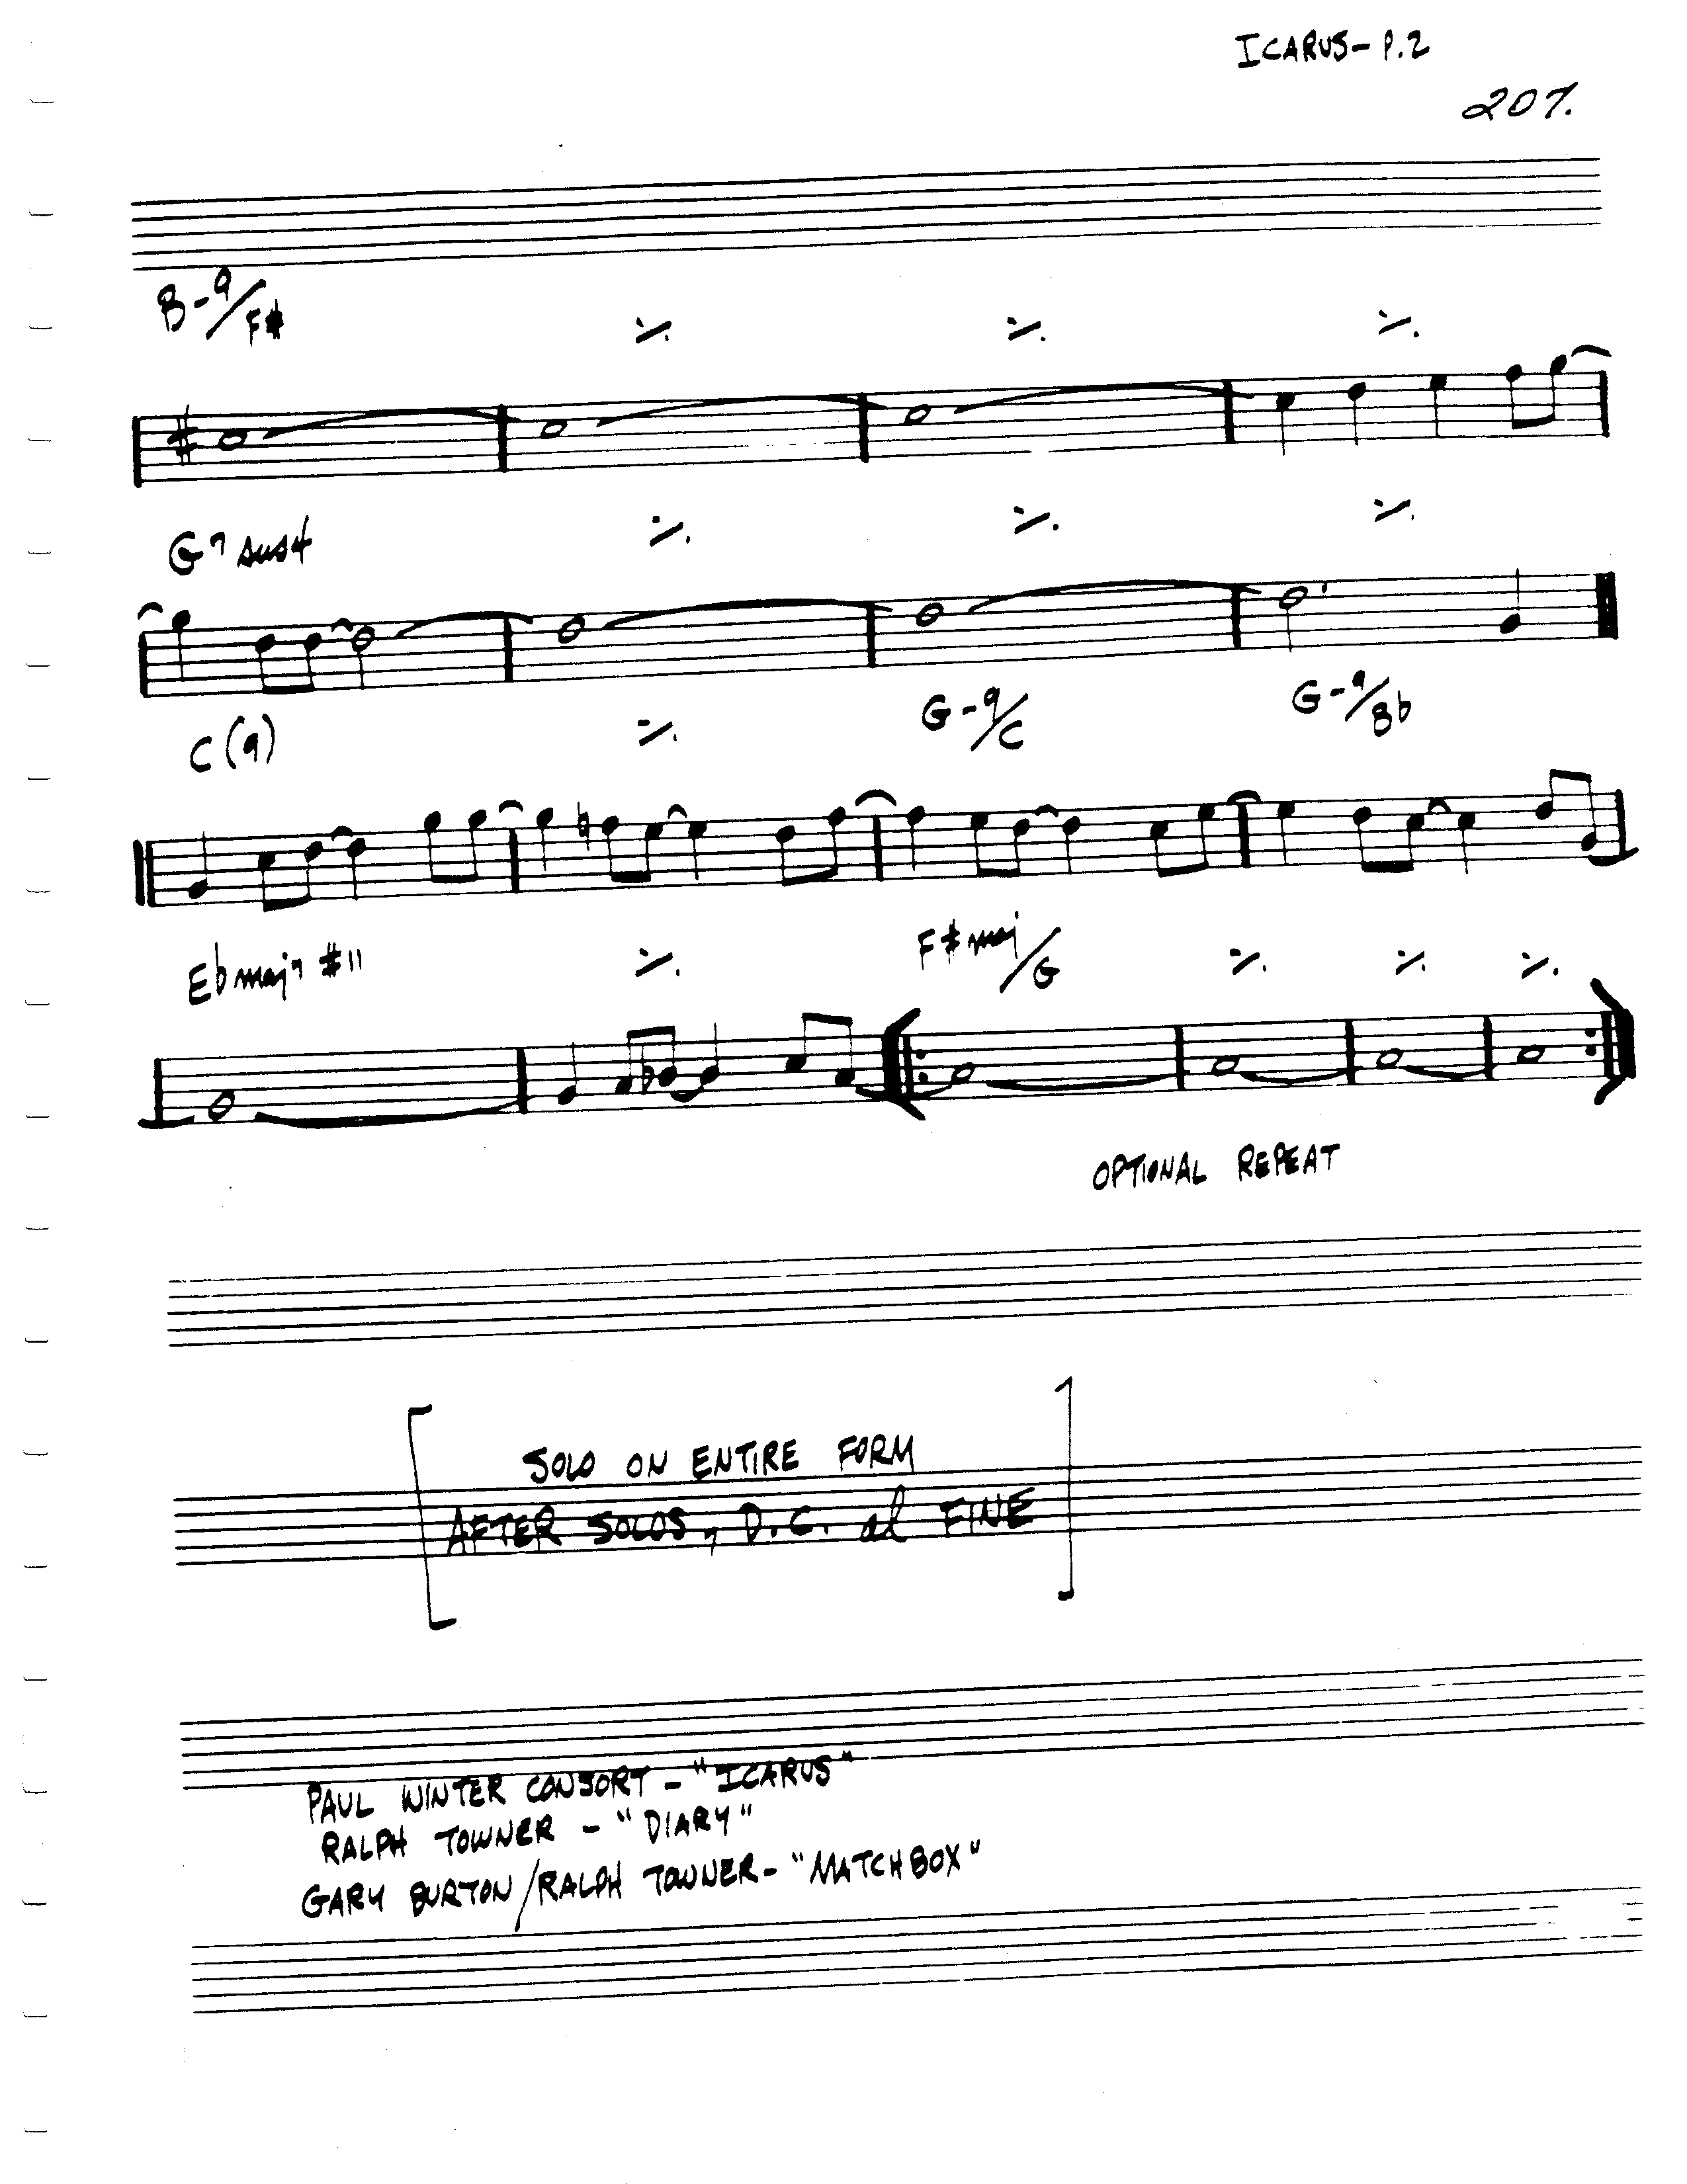 ICARUS - P.2
207.
B-9/F# ٪ ٪ ٪
G7sus4 ٪ ٪ ٪
C(9) ٪ G-9/C G-9/Bb
Ebmaj7 #11 ٪ F#maj/G ٪ ٪ ٪
OPTIONAL REPEAT
SOLO ON ENTIRE FORM
AFTER SOLOS, D.C. al FINE
PAUL WINTER CONSORT - "ICARUS"
RALPH TOWNER - "DIARY"
GARY BURTON/RALPH TOWNER - "MATCHBOX"